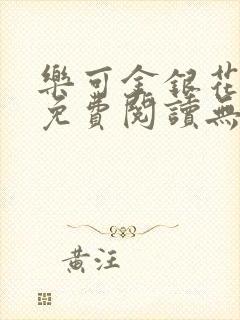 樂可金銀花
免費閱讀無
黃汪